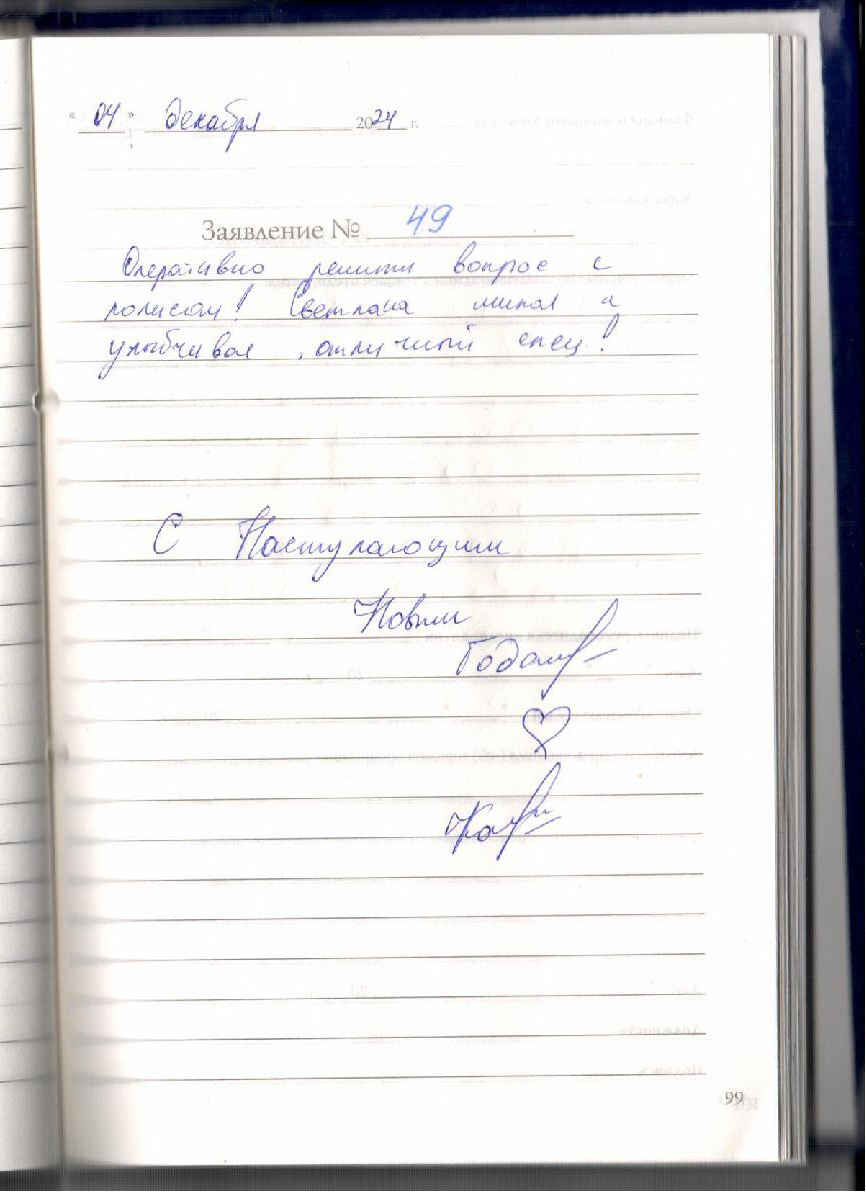 « 04 » декабря 2024 г.
Заявление № 49
Оперативно решили вопрос с
полисом! Светлана милая и
улыбчивая, отличный спец!
С Наступающим
Новым
Годом
99